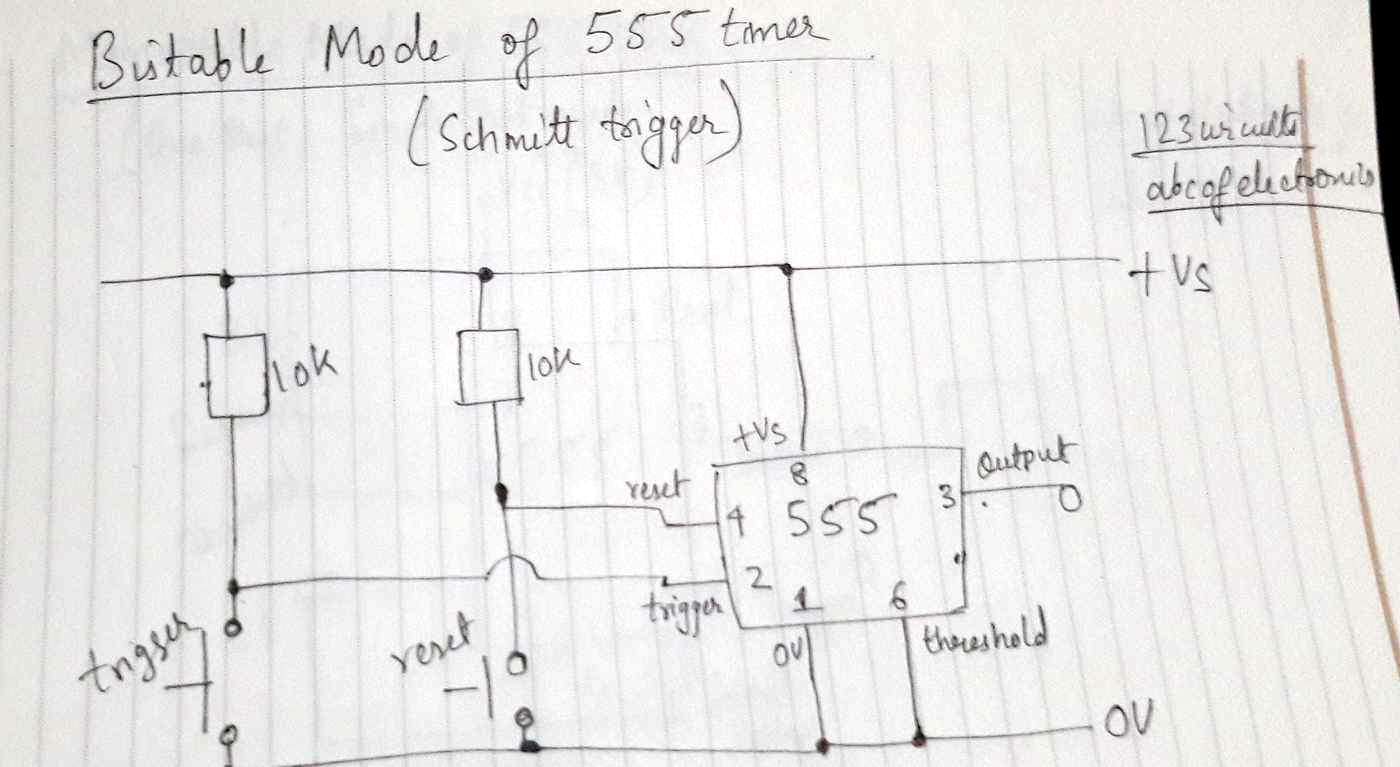 Bistable Mode of 555 timer
(Schmitt trigger)
123circuits
abcofelectronics
+Vs
10K
10K
+Vs
reset
4
8
555
3
Output
2
trigger
1
6
0V
threshold
trigger
reset
0V